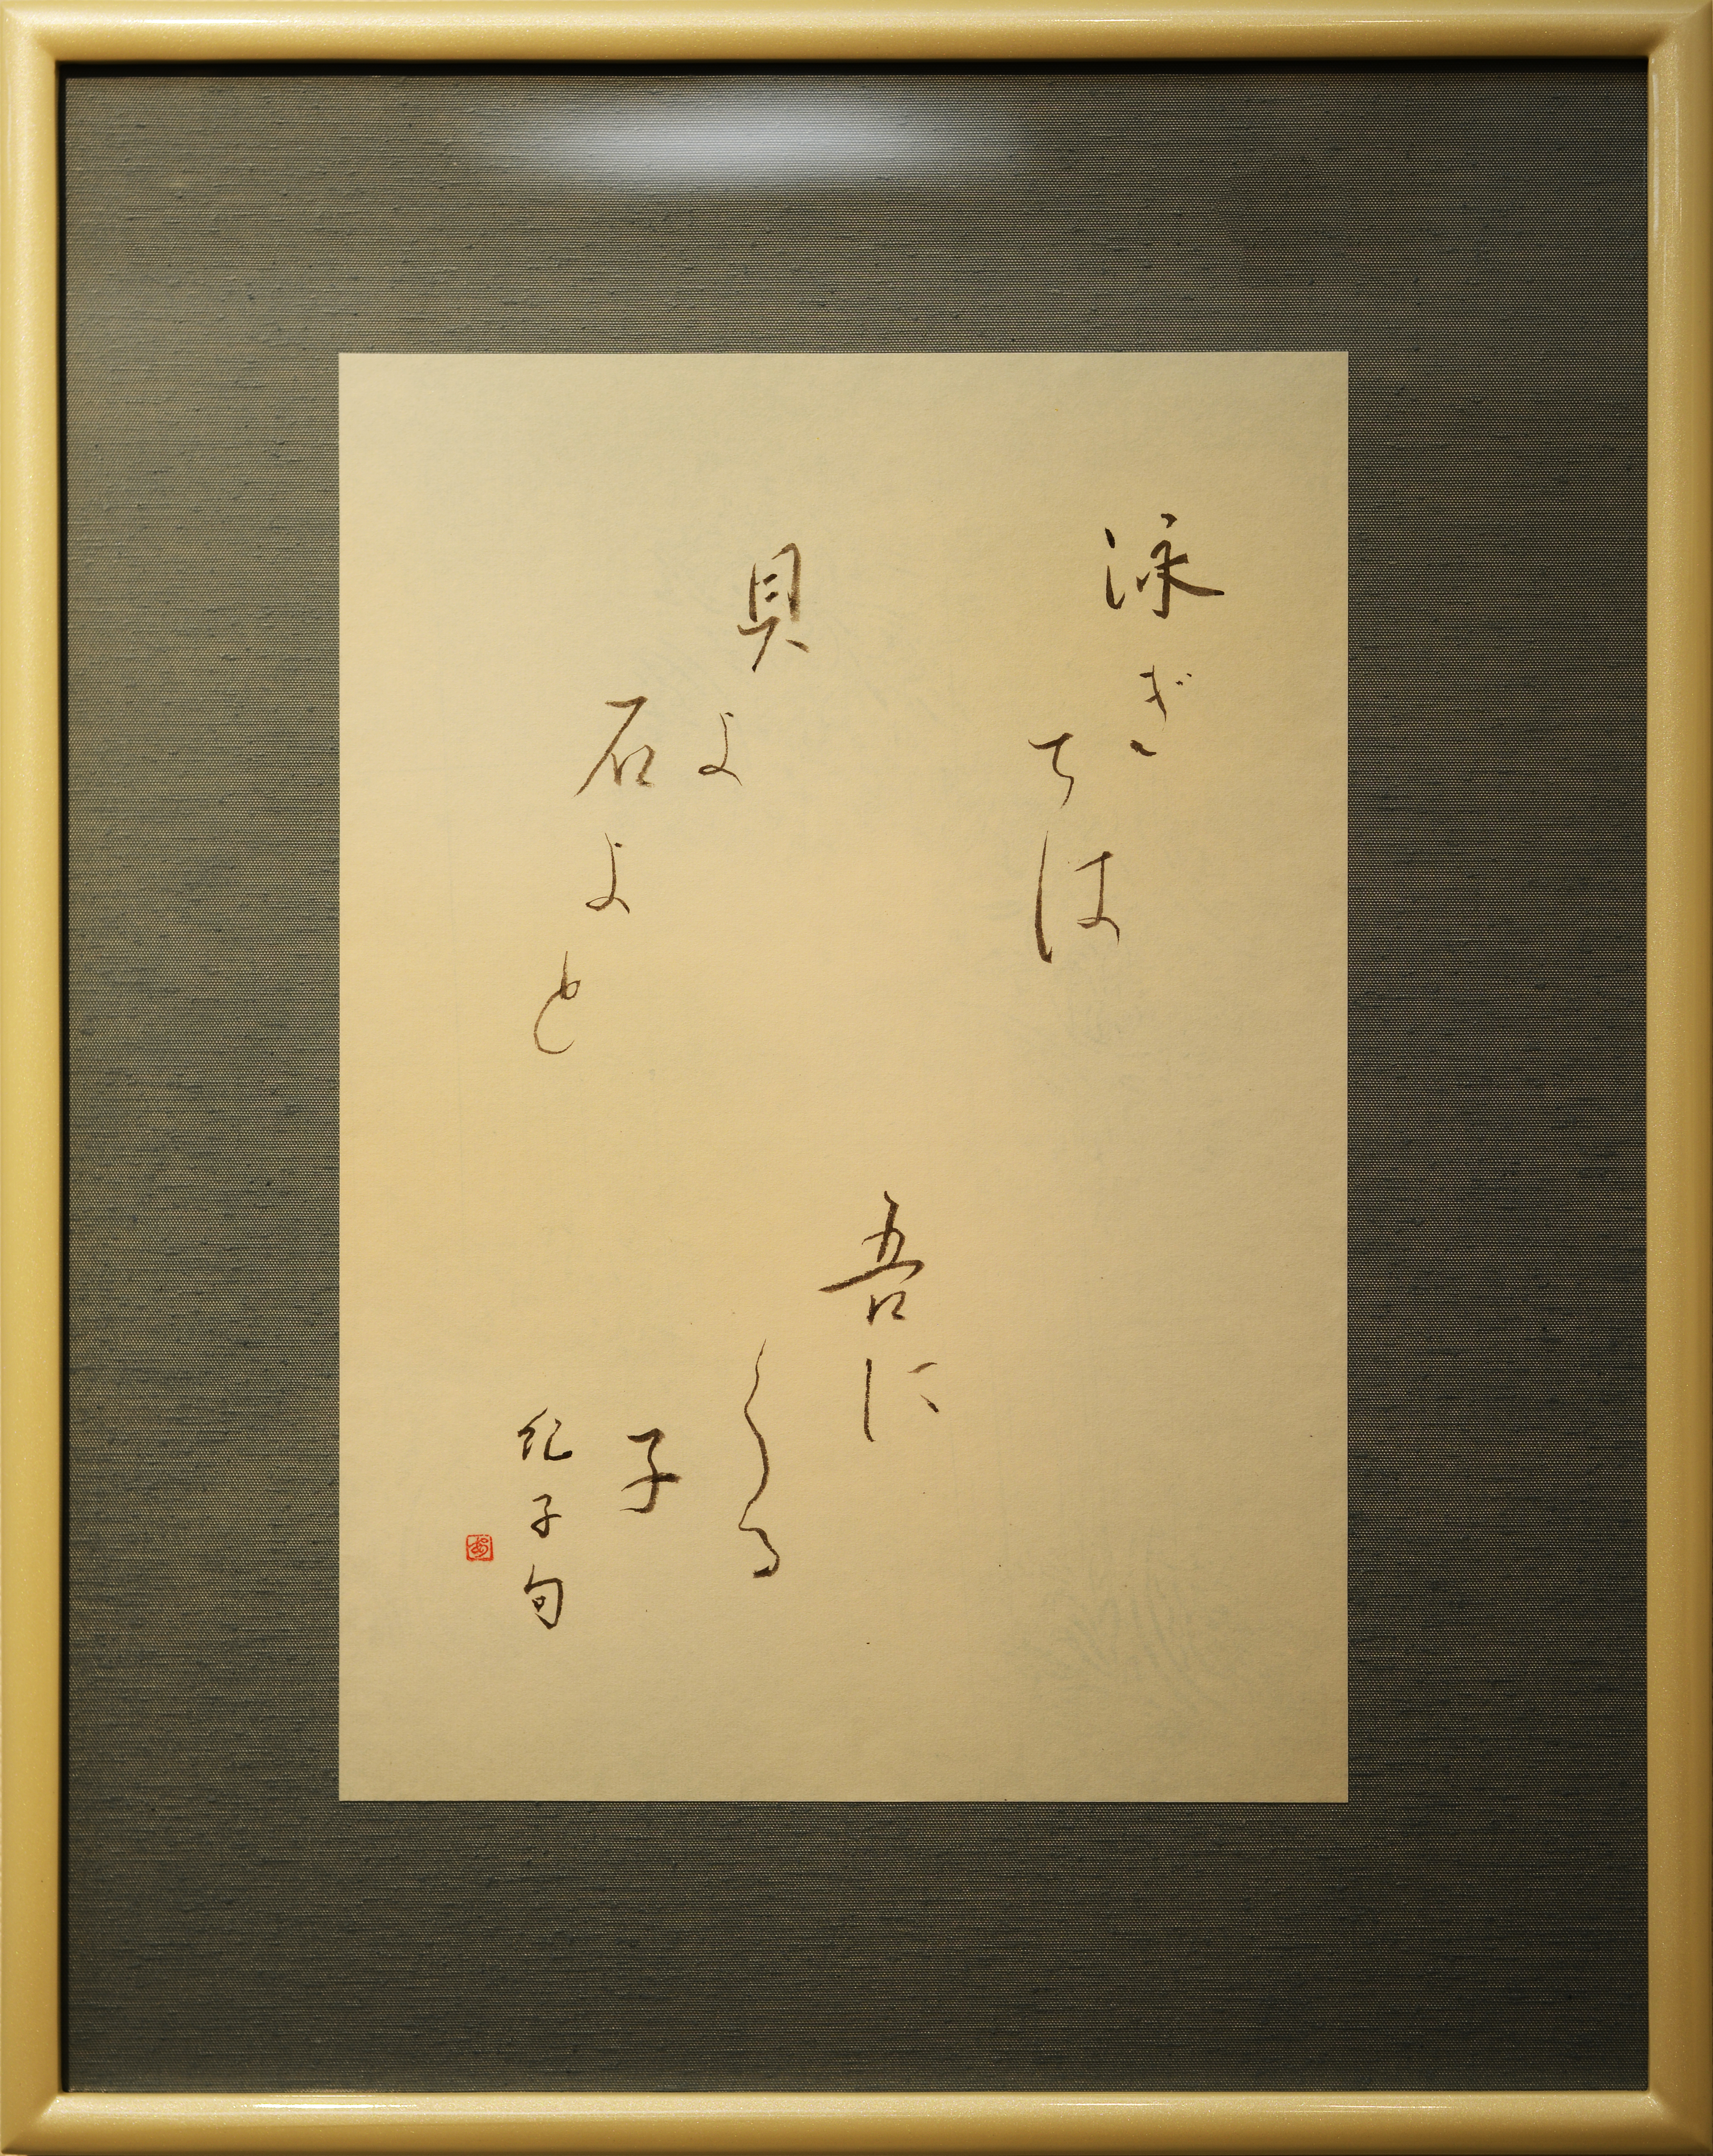 泳ぎては
貝よ
石よと
吾に
くる
子
紀子句